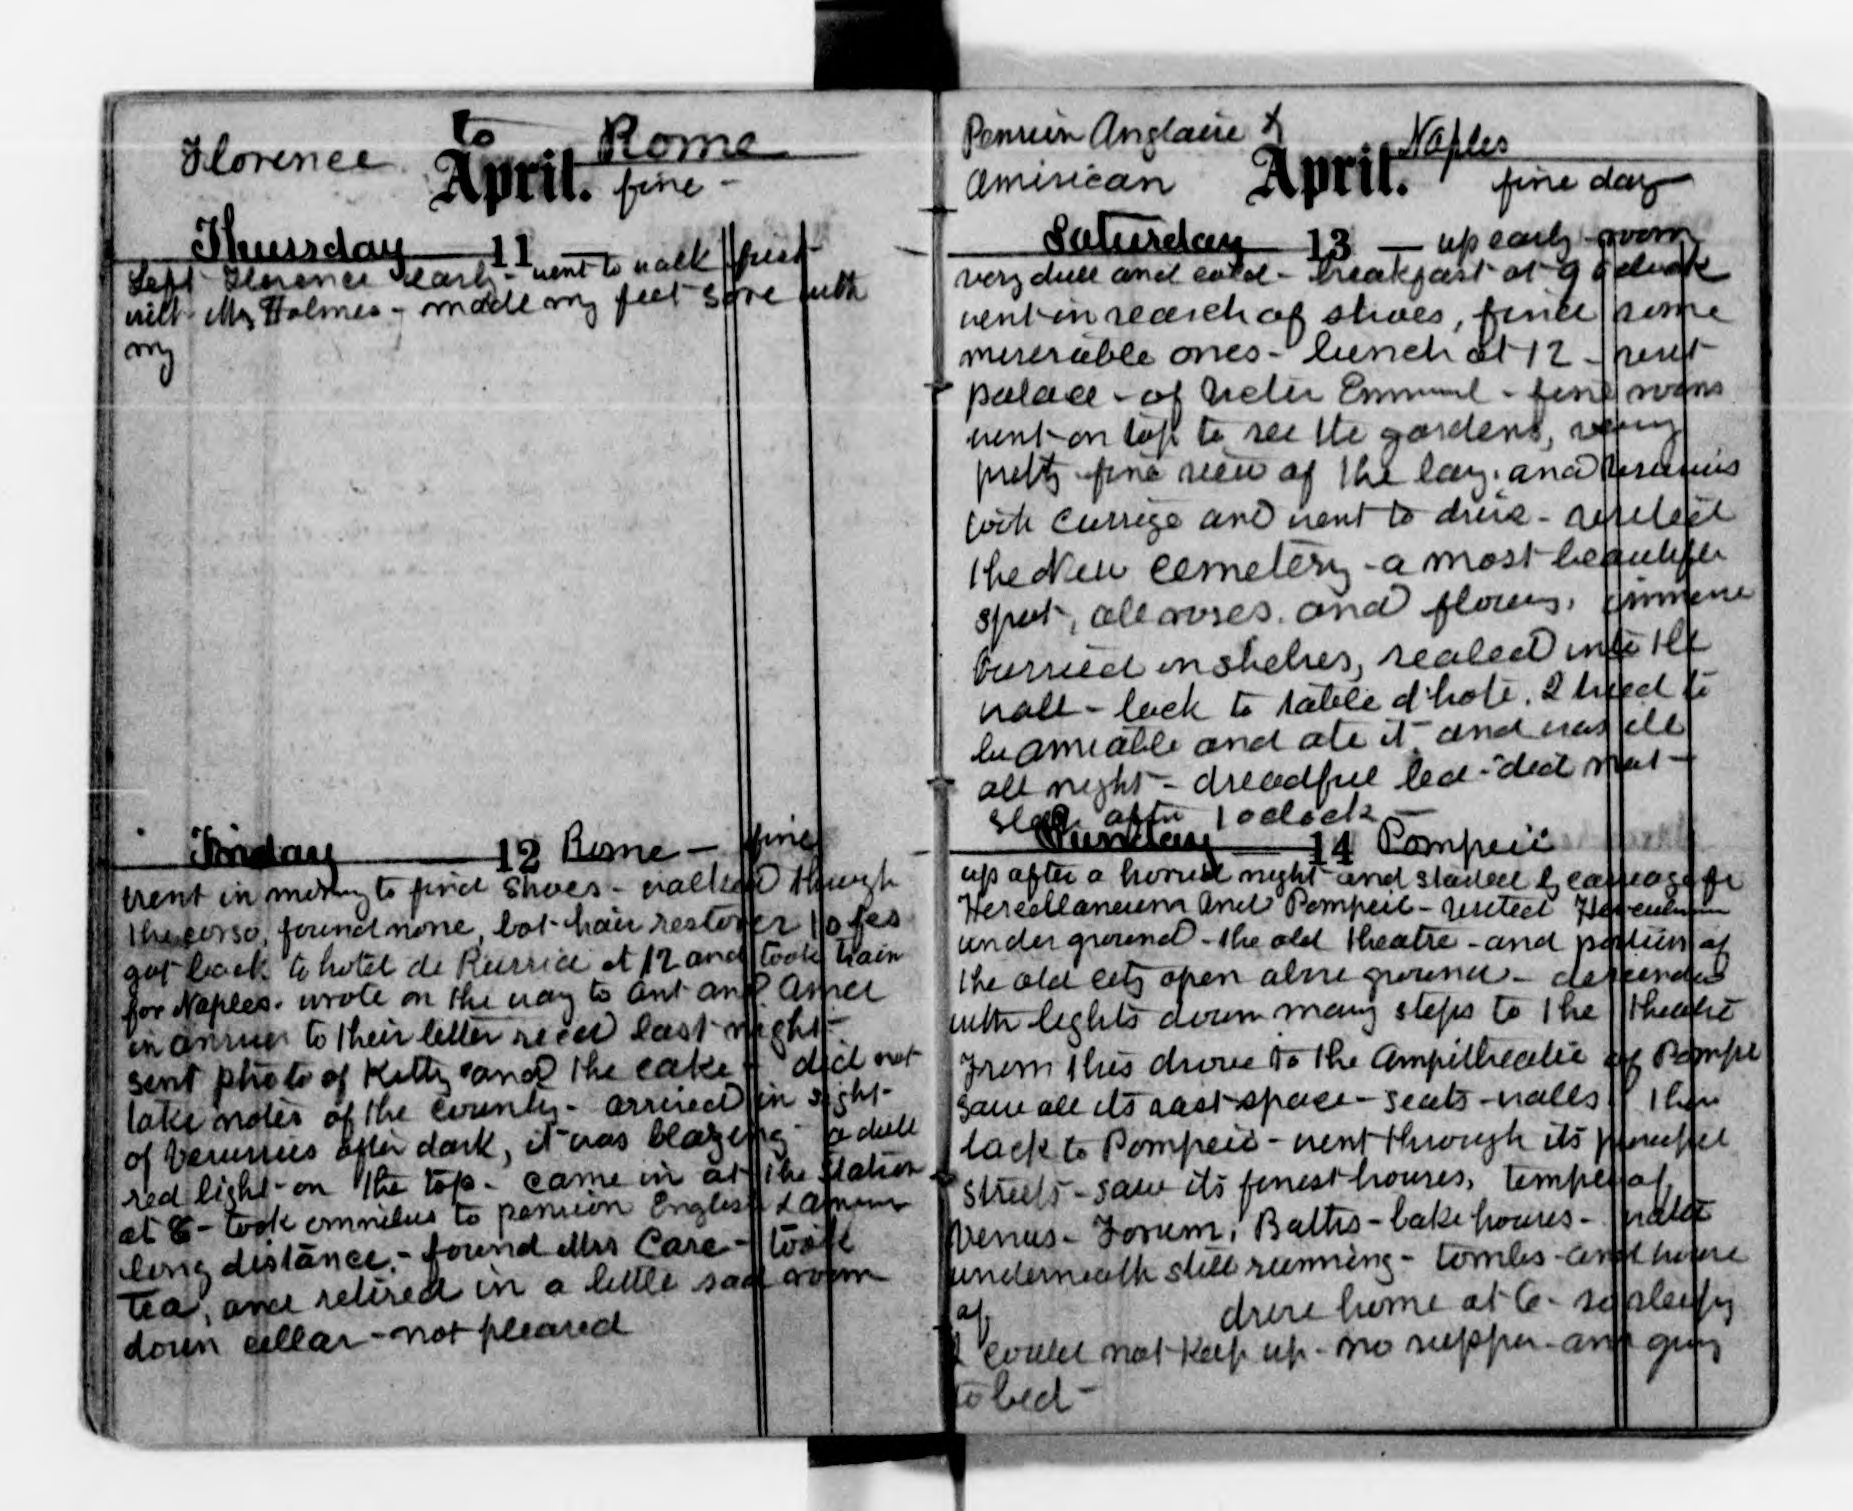 Florence to Rome
April. fine -
Thursday 11 - went to walk first
Left Florence early -
with Mrs Holmes - made my feet sore with
my
Friday 12 Rome - fine
went in morning to find shoes - walked through
the corso, found none, bot hair restorer 10 fcs
got back to hotel de Russie at 12 and took train
for Naples. wrote on the way to Ant and Amel
in answer to their letter recd last night -
sent photo of Kitty and the cake - did not
take notes of the country - arrived in sight -
of Vesuvius after dark, it was blazing a dull
red light - on the top - came in at the station
at 8 - took omnibus to pension English &
long distance - found Mrs Case - took
tea, and retired in a little sad room
down cellar - not pleased
Pension Anglaise &
American
April. Naples
fine day
Saturday 13 - up early - room
very dull and cold - breakfast at 9 oclock
went in search of shoes, find some
miserable ones - lunch at 12 - visit
palace - of Victor Emanuel - fine rooms
went on top to see the gardens, very
pretty - fine view of the bay. and Vesuvius
took carrige and went to drive - visited
the New cemetery - a most beautiful
spot, all roses. and flowers.
burried in shelves, sealed into the
wall - back to table d'hote. I tried to
be amiable and ate it and was ill
all night - dreadful bed - did not -
sleep after 1 oclock -
Sunday 14 Pompeii
up after a horrid night - and started by carriage for
Herculaneum and Pompeii - visited Herculaneum
under ground - the old theatre - and portion of
the old city open above ground - descended
with lights down many steps to the theatre
From this drove to the Ampitheatre of Pompe
saw all its vast space - seats - walls. then
back to Pompeii - went through its principal
streets - saw its finest houses, temple of
Venus - Forum, Baths - bake houses - water
underneath still running - tombs - and house
of drove home at 6 - so sleepy
I could not keep up - no supper - and going
to bed -